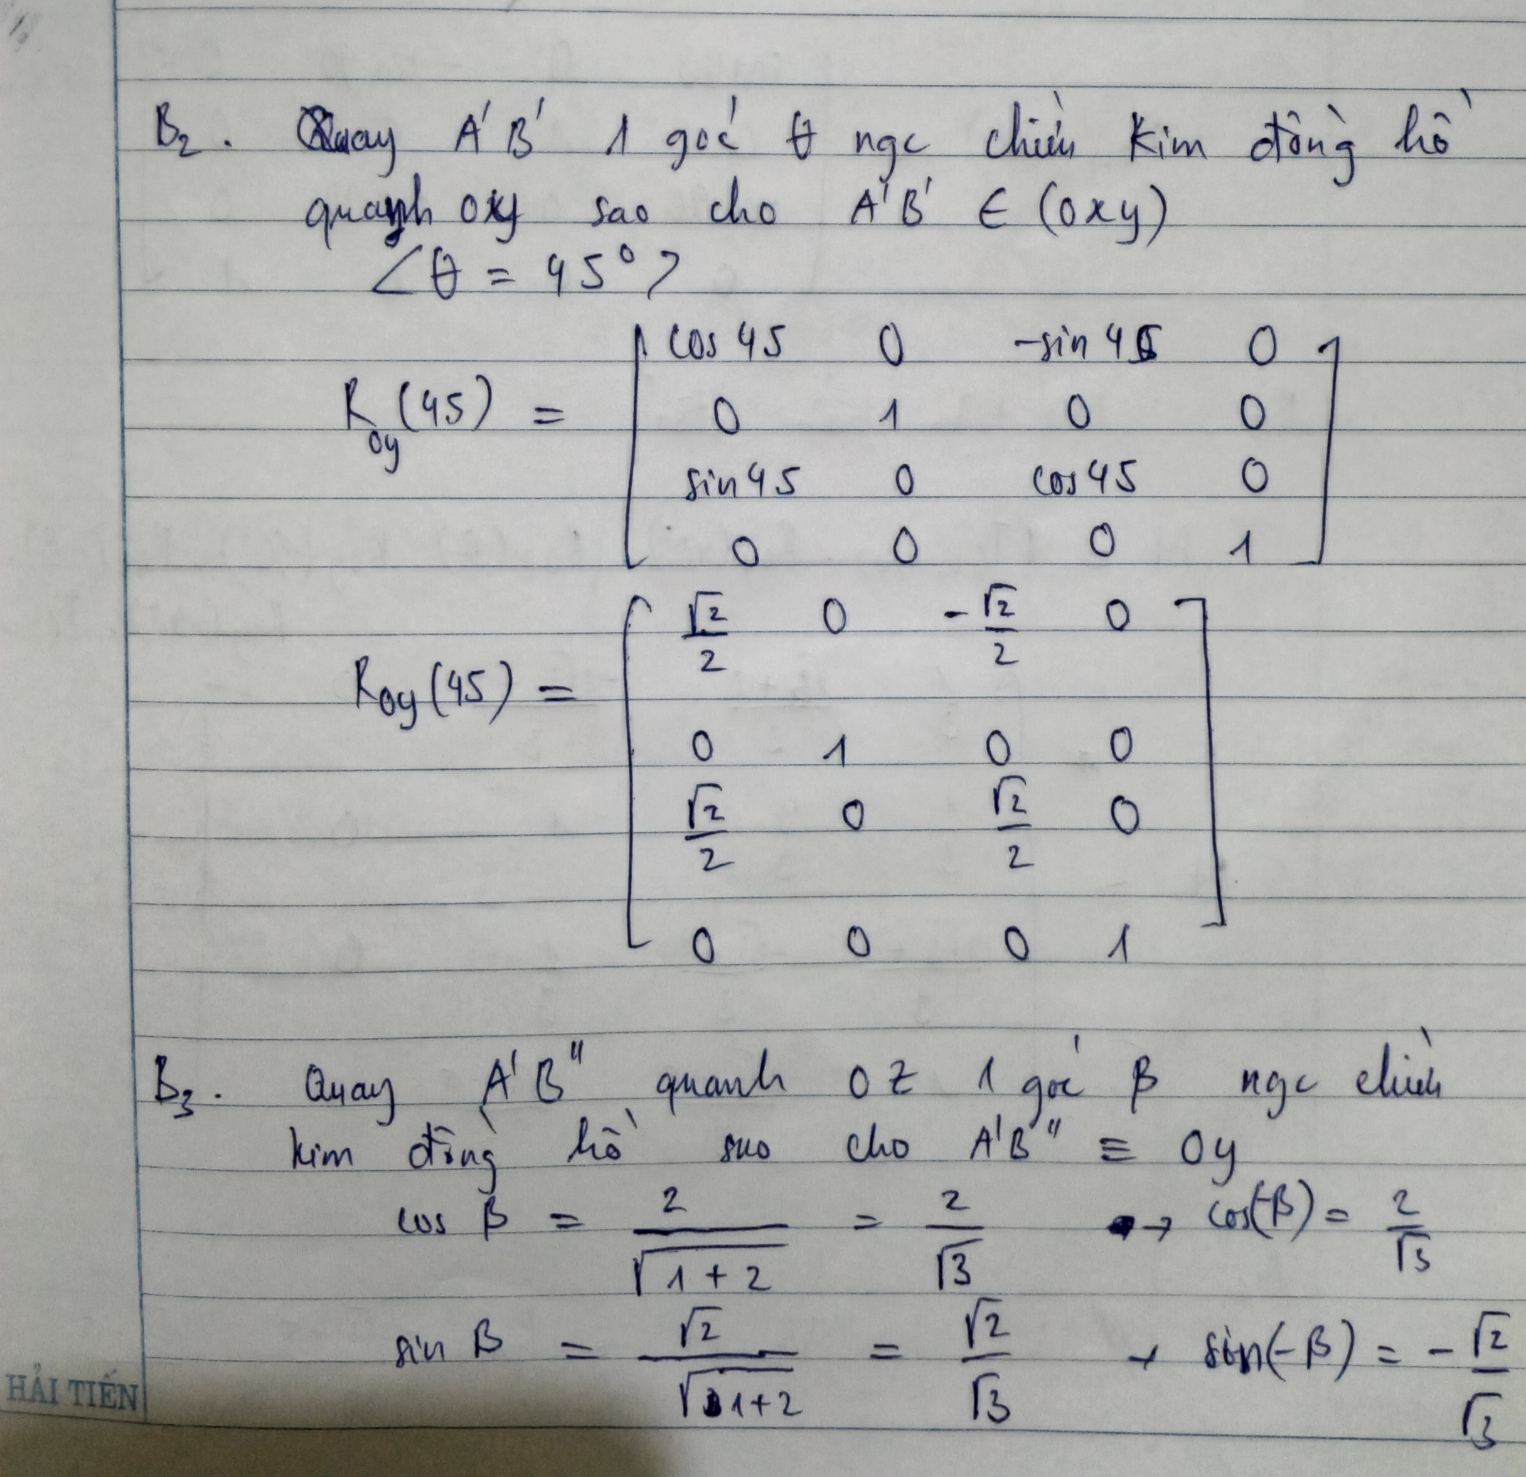 B₂. Quay A'B' 1 góc θ ngc chiều kim đồng hồ
quanh oy sao cho A'B' ∈ (oxy)
<θ = 45°>
R_oy(45) = [ cos 45 0 -sin 45 0
0 1 0 0
sin45 0 cos45 0
0 0 0 1 ]
R_oy(45) = [ √2/2 0 -√2/2 0
0 1 0 0
√2/2 0 √2/2 0
0 0 0 1 ]
B₃. Quay A'B'' quanh OZ 1 góc β ngc chiều
kim đồng hồ sao cho A'B'' ≡ Oy
cos β = 2/√(1+2) = 2/√3 → cos(-β) = 2/√3
sin β = √2/√(1+2) = √2/√3 → sin(-β) = -√2/√3
HẢI TIẾN